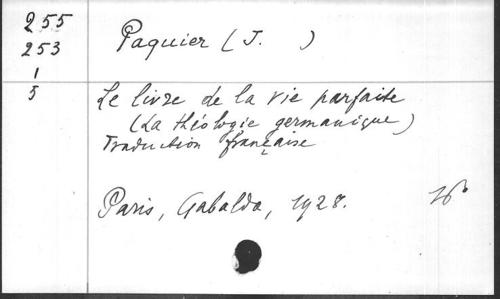 255
253
1
5
Paquier (J. )
Le livre de la vie parfaite
(La théologie germanique)
Traduction française
Paris, Gabalda, 1928.
16°